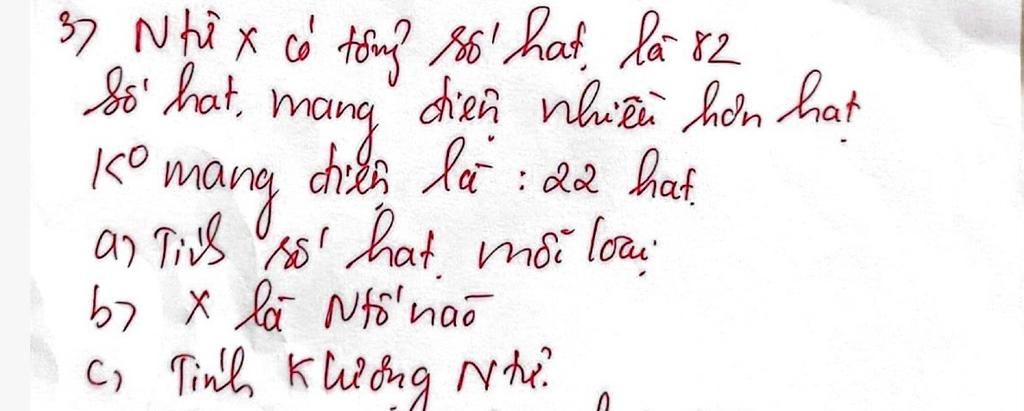 3) Ntử X có tổng số hạt là 82
Số hạt mang điện nhiều hơn hạt
K° mang điện là : 22 hạt
a) Tính số hạt mỗi loại
b) X là Ntố nào
c) Tính K lượng Ntử.